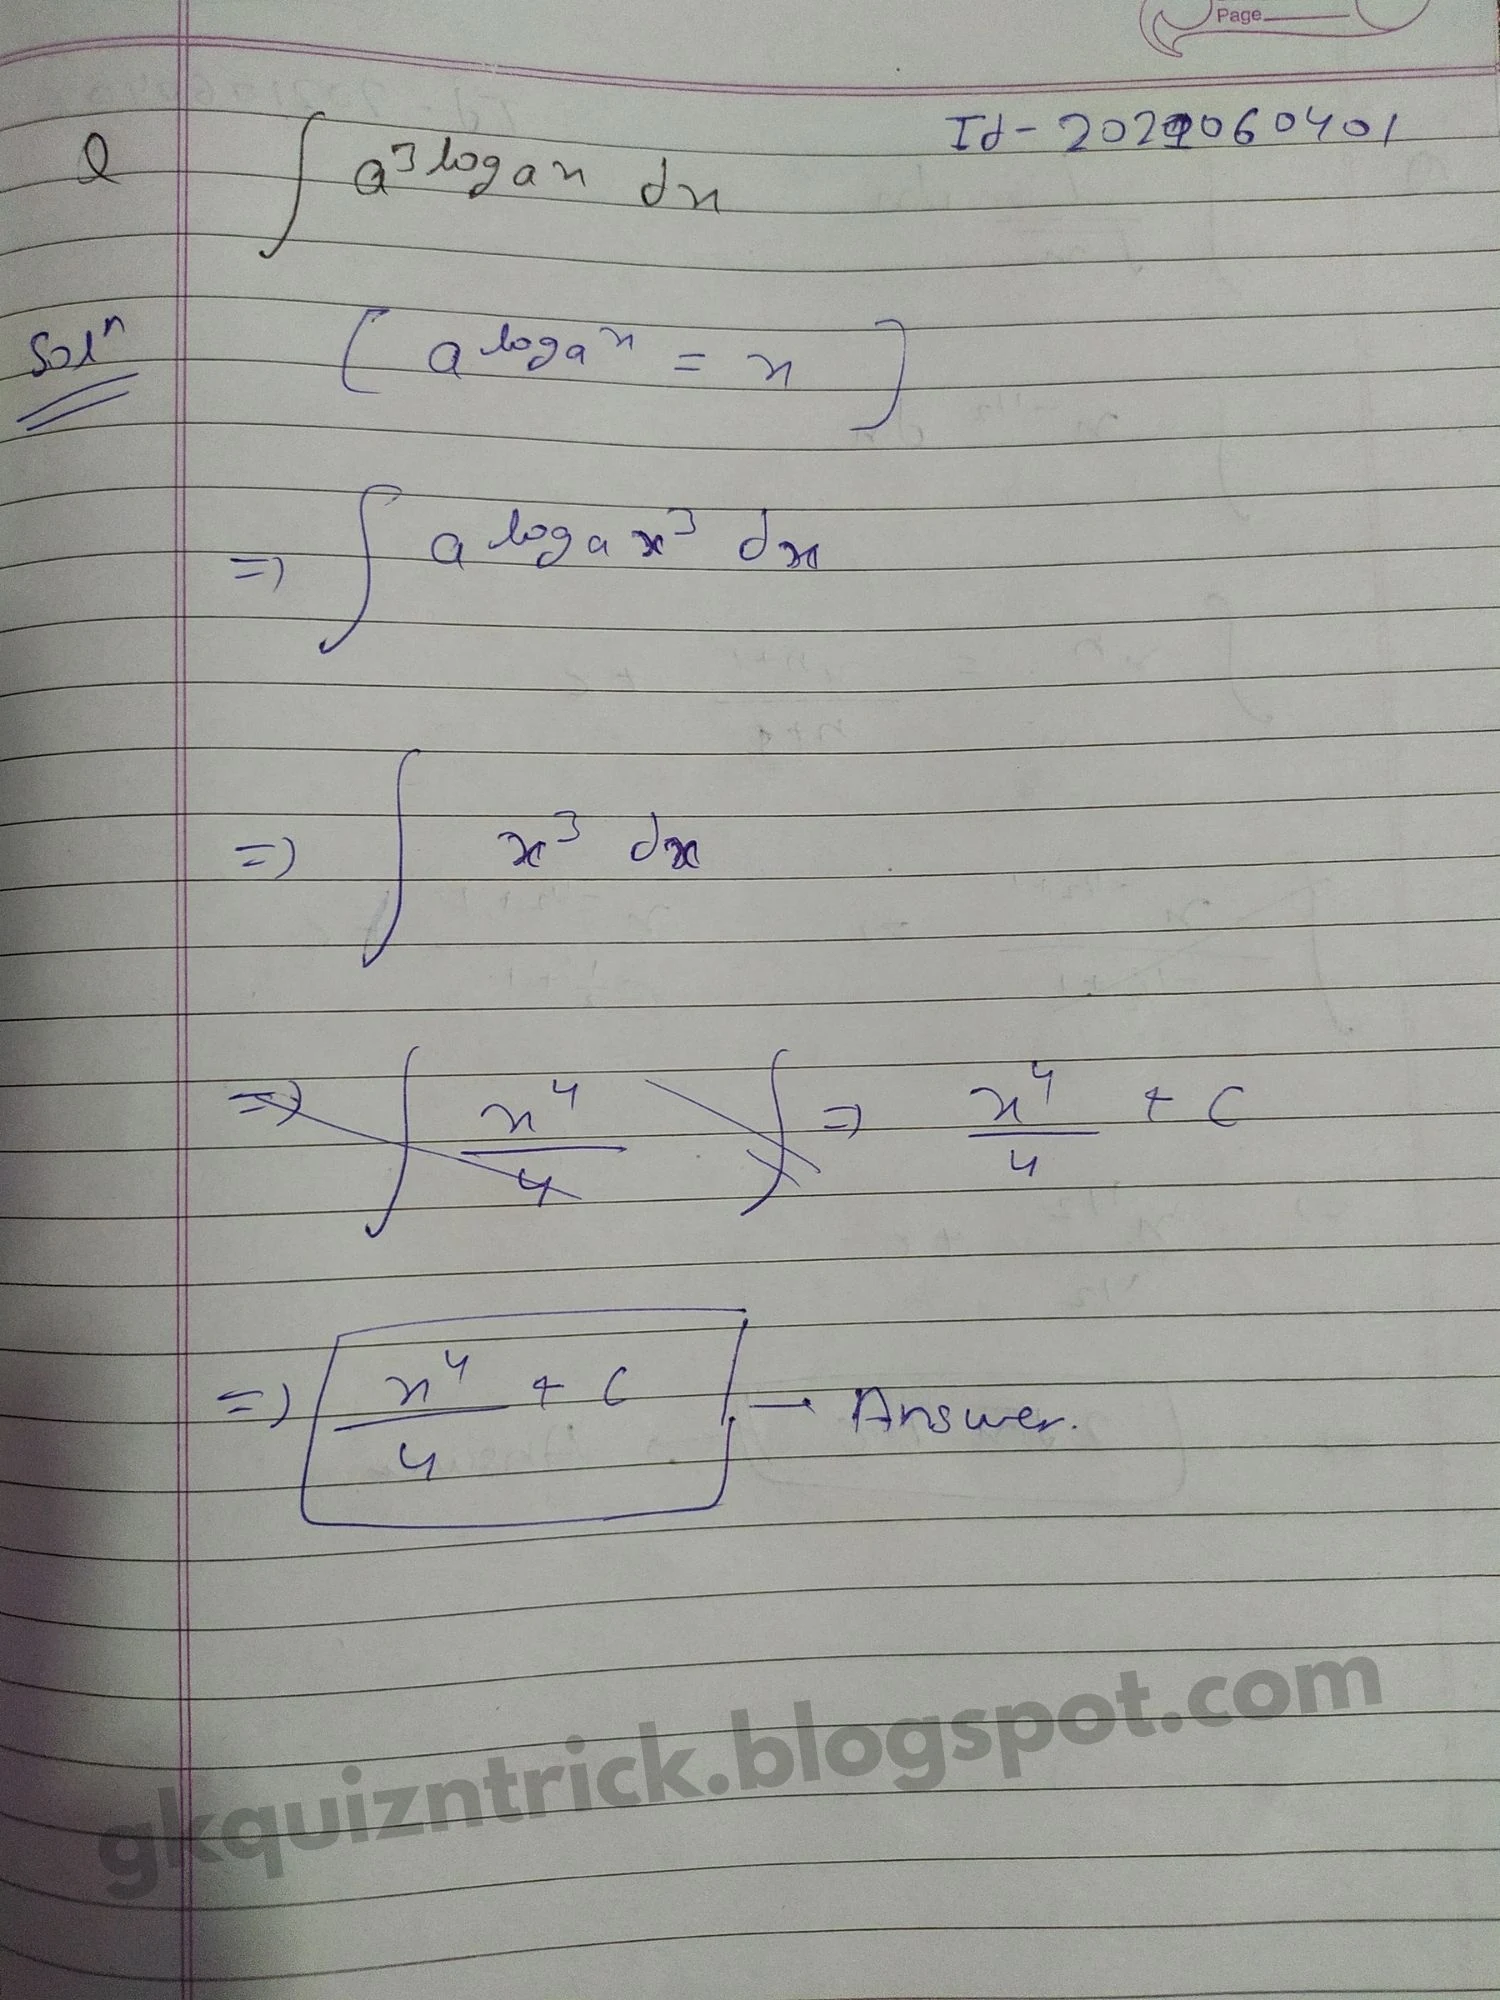 Page
Id-2021060401
Q ∫ a^3 log a x dx
Solⁿ [ a^log a^x = x ]
=> ∫ a^log a x^3 dx
=> ∫ x^3 dx
=> ∫ x^4/4 ∫ => x^4/4 + C
=> x^4/4 + C → Answer.
gkquizntrick.blogspot.com